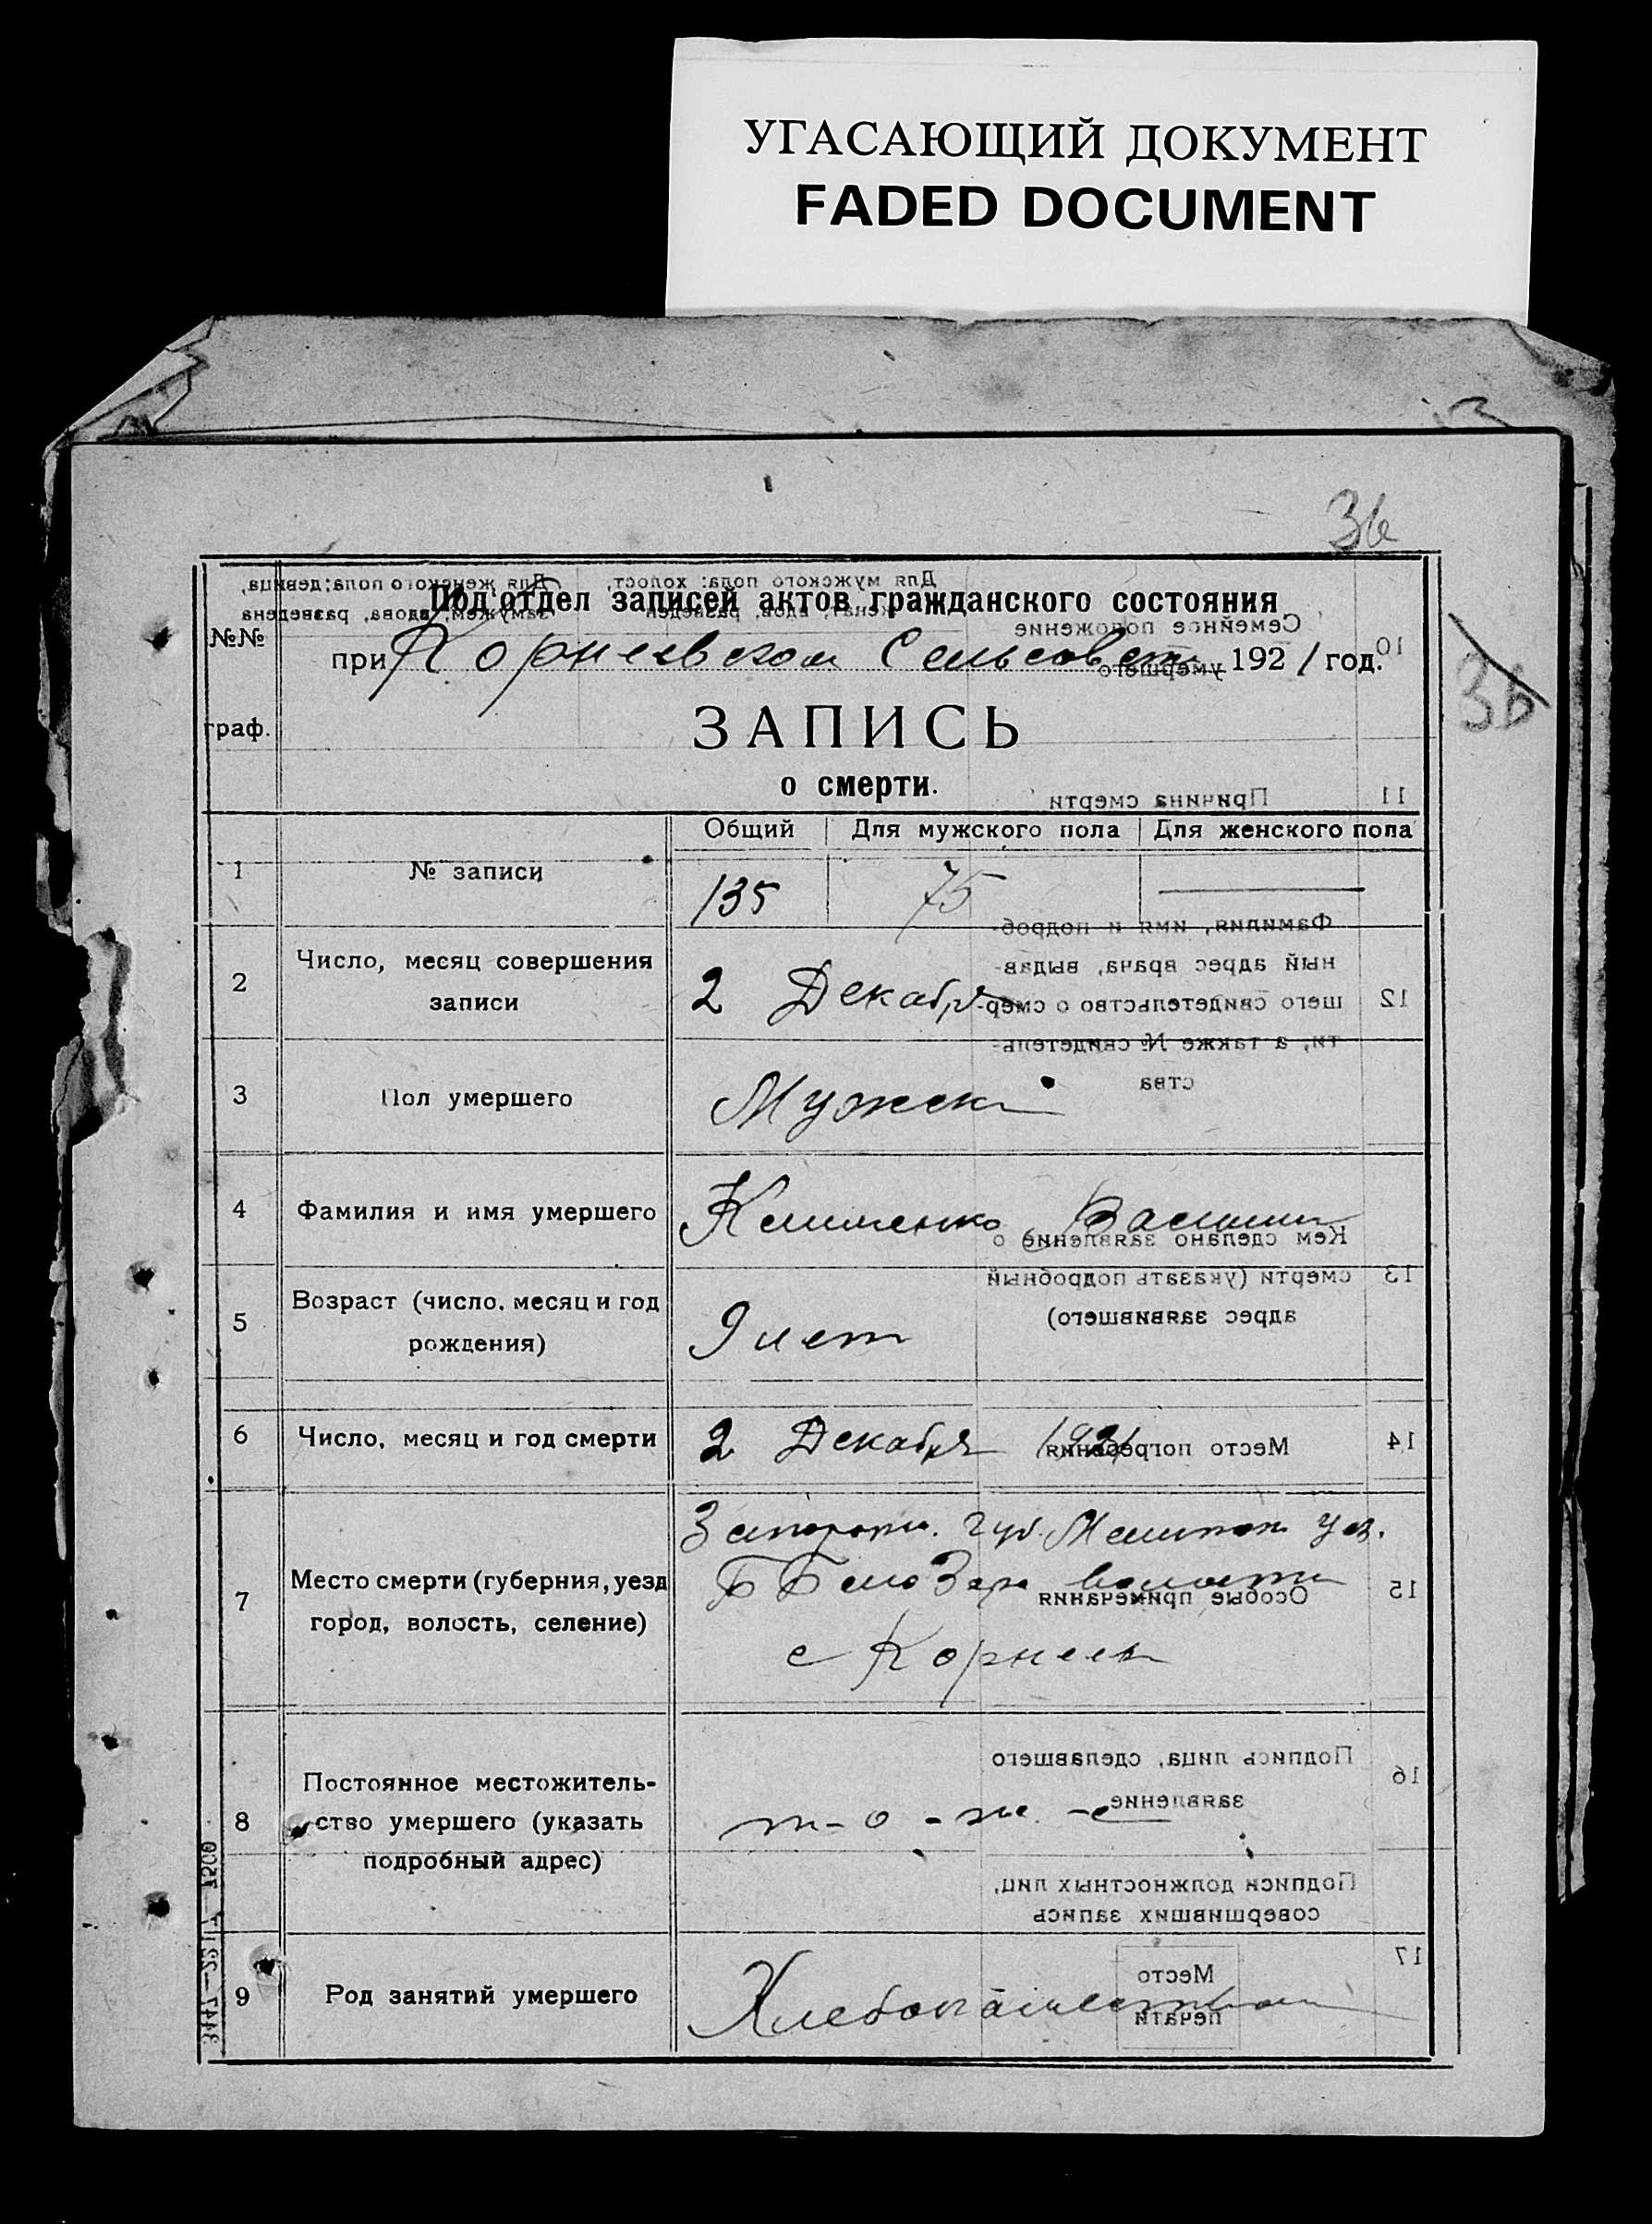 УГАСАЮЩИЙ ДОКУМЕНТ
FADED DOCUMENT
36
Под'отдел записей актов гражданского состояния
при Корнеевском Сельсовете 1921 год.
36
№№ граф.
ЗАПИСЬ
о смерти.
Общий Для мужского пола Для женского пола
1 № записи 135 75
2 Число, месяц совершения записи 2 Декабря
3 Пол умершего Мужск
4 Фамилия и имя умершего Василий
5 Возраст (число, месяц и год рождения) 9 лет
6 Число, месяц и год смерти 2 Декабря 1921
7 Место смерти (губерния, уезд город, волость, селение) Запорож. губ. Мелитоп уез.
Б Белозер волости
с Корнеев
8 Постоянное местожительство умершего (указать подробный адрес) т-о-ж-е
9 Род занятий умершего Хлебопашество
Для женского пола: девица, замужем, вдова, разведена
Для мужского пола: холост, женат, вдов, разведен
Семейное положение умершего 10
Причина смерти 11
Фамилия, имя и подроб-
ный адрес врача, выдав-
шего свидетельство о смер- 12
ти, а также № свидетель-
ства
Кем сделано заявление о
смерти (указать подробный 13
адрес заявившего)
Место погребения 14
Особые примечания 15
Подпись лица, сделавшего 16
заявление
Подписи должностных лиц,
совершивших запись
17
Место
печати